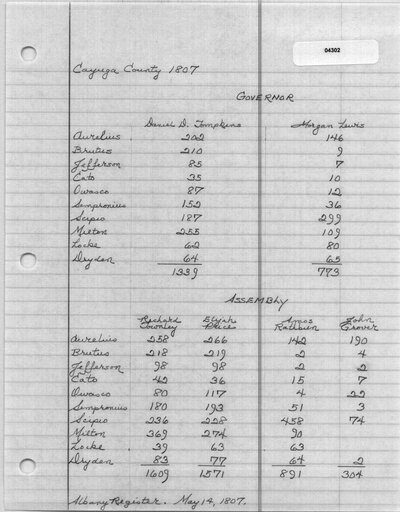 04302
Cayuga County 1807
GOVERNOR
Daniel D. Tompkins Morgan Lewis
Aurelius 202 146
Brutus 210 9
Jefferson 85 7
Cato 35 10
Owasco 87 12
Sempronius 152 36
Scipio 187 299
Milton 255 109
Locke 62 80
Dryden 64 65
1339 773
ASSEMBLY
Richard Elijah Amos John
Townley Price Rathbun Grover
Aurelius 258 266 142 190
Brutus 218 219 2 4
Jefferson 98 98 2 2
Cato 42 36 15 7
Owasco 80 117 4 22
Sempronius 180 193 51 3
Scipio 236 228 458 74
Milton 369 274 90
Locke 39 63 63
Dryden 83 77 64 2
1609 1571 891 304
Albany Register. May 14, 1807.